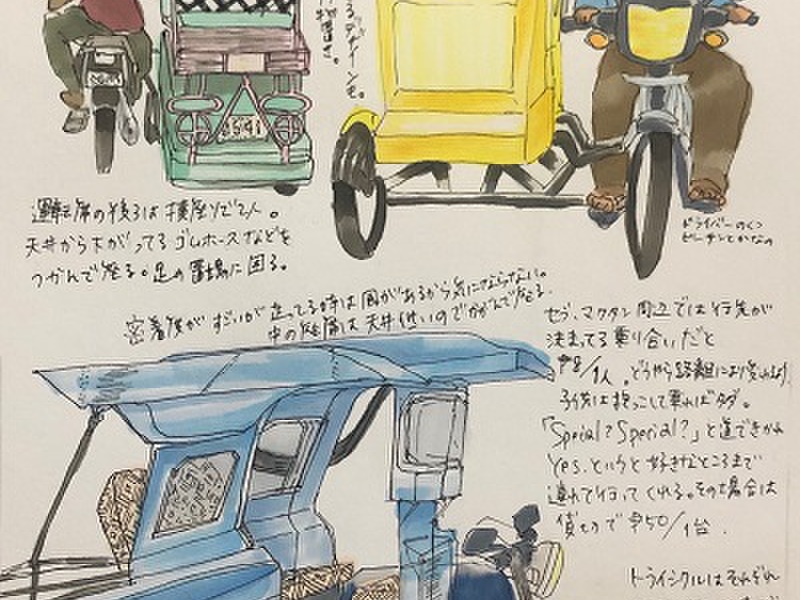 るデザインも。
運転席の後ろは横座りで2人。
天井から下がってるゴムホースなどを
つかんで座る。足の置場に困る。
ドライバーのくつ
ビーサンとかなの
密着度がすごいが走ってる時は風があるから気にならない。
中の座席は天井低いのでかがんで座る。
セブ、マクタン周辺では行先が
決まってる乗り合いだと
₱8/1人。どうやら距離により変わる
子供は抱っこして乗ればタダ。
「Special?Special?」と道できかれ
Yes.というと好きなところまで
連れて行ってくれる。その場合は
貸切で₱50/1台.
トライシクルはそれぞれ